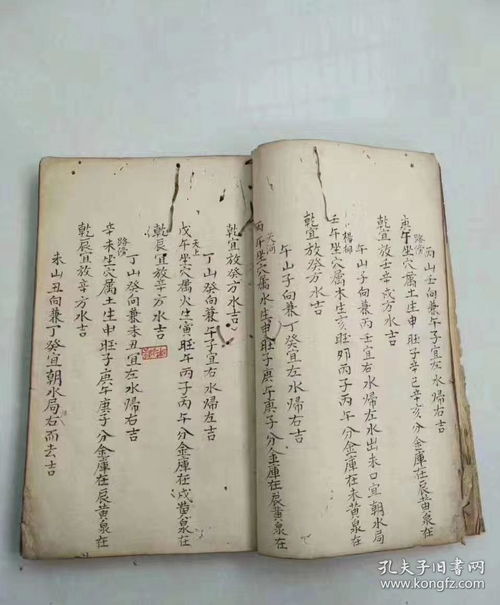 丙山壬向兼午子宜左水歸右吉
路傍
庚午坐穴属土生申旺子辛巳辛亥分金庫在辰黄泉在
乾宜放壬辛戌方水吉
午山子向兼丙壬宜右水歸左水出未口宜朝水局
楊柳
壬午坐穴属木生亥旺卯丙子丙午分金庫在未黄泉在
乾宜放癸方水吉
午山子向兼丁癸宜左水歸右吉
天河
丙午坐穴属水生申旺子庚午庚子分金庫在辰黄泉在
乾宜放癸方水吉
丁山癸向兼午子宜右水歸左吉
天上
戊午坐穴属火生寅旺午丙子丙午分金庫在戌黄泉在
乾辰宜放辛方水吉
丁山癸向兼未丑宜左水歸右吉
路傍
辛未坐穴属土生申旺子庚午庚子分金庫在辰黄泉在
乾辰宜放辛方水吉
未山丑向兼丁癸宜朝水局右而去吉
孔夫子旧书网
www.kongfz.com